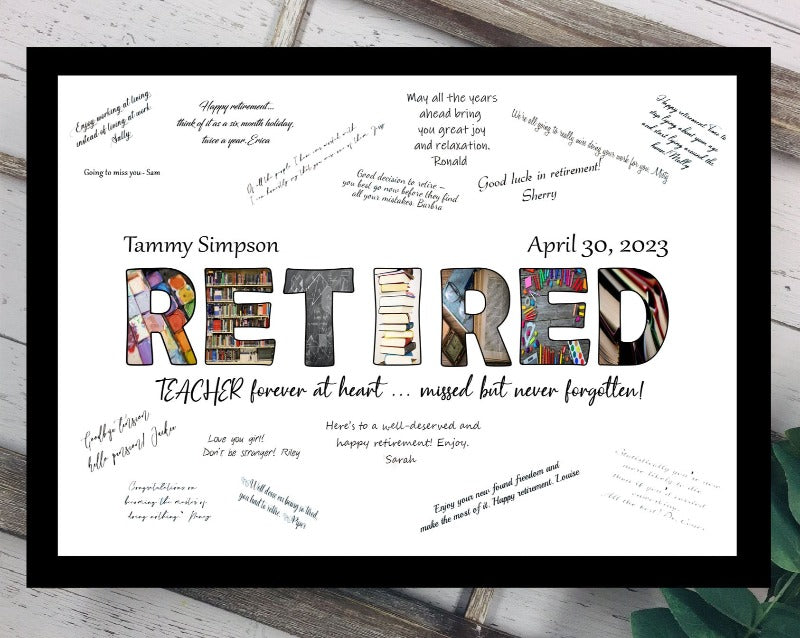 Enjoy working at living,
instead of living at work.
Sally.
Happy retirement...
think of it as a six month holiday,
twice a year. Erica
May all the years
ahead bring
you great joy
and relaxation.
Ronald
We're all going to really miss doing your work for you. Misty
Happy retirement. Time to
stop lying about your age
and start lying around the
house! Molly
Going to miss you - Sam
Of all the people I have ever worked with
I can honestly say that you were one of them.
Good decision to retire –
you best go now before they find
all your mistakes. Barbra
Good luck in retirement!
Sherry
Tammy Simpson
April 30, 2023
RETIRED
TEACHER forever at heart ... missed but never forgotten!
Goodbye tension
hello pension! Jackie
Love you girl!
Don't be stranger! Riley
Here's to a well-deserved and
happy retirement! Enjoy.
Sarah
Congratulations on
becoming the master of
doing nothing."
Well done on being so tired,
you had to retire
Piper
Enjoy your new found freedom and
make the most of it. Happy retirement. Louise
Statistically you're now
more likely to die
All the best